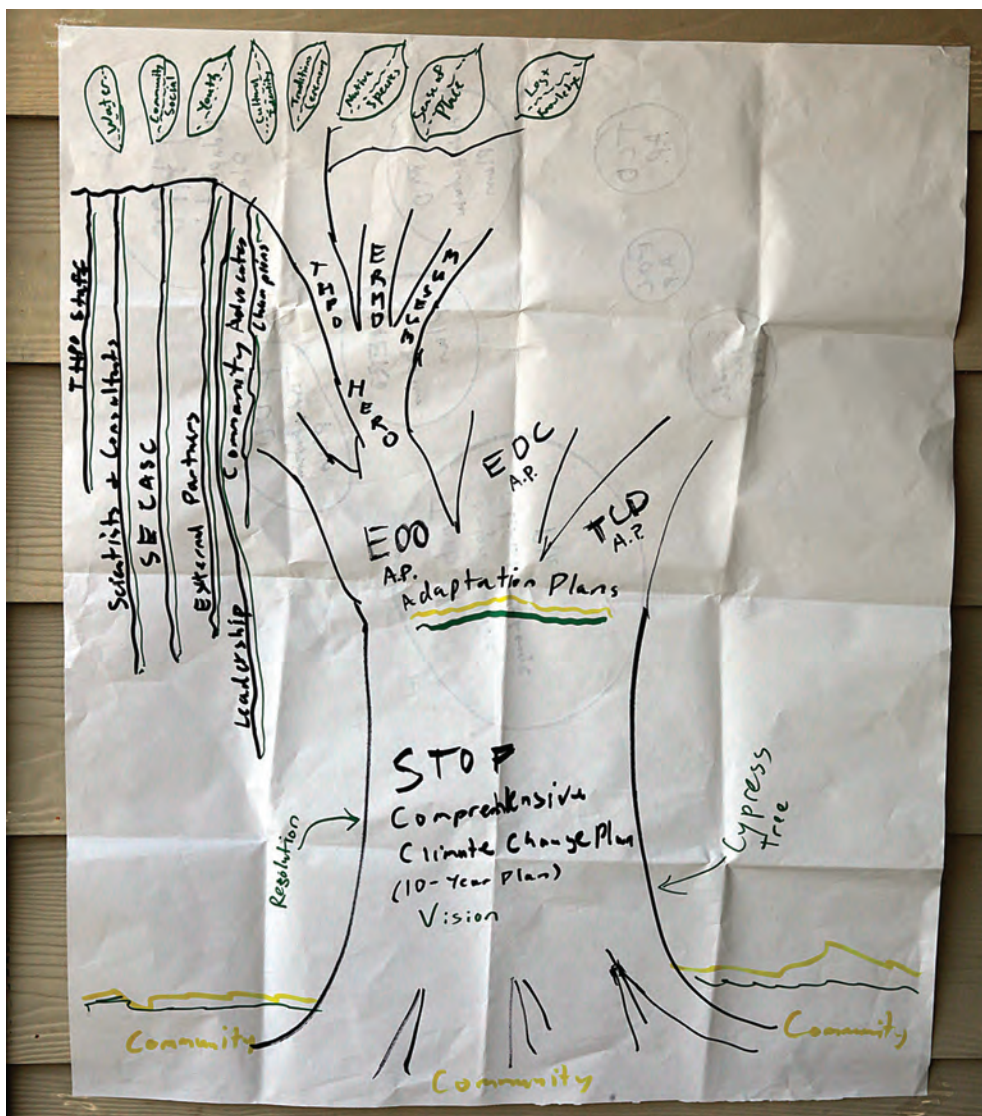 Water
Community
Social
Youth
Cultural
Identity
Tradition
Ceremony
Native
Species
Sense of
Place
Lost
Knowledge
THPO Staff
Scientists & Consultants
SECASC
External Partners
Community Advocates
Champions
Leadership
THPO
ERMD
MUSEUM
HERO
EOC
A.P.
TLD
A.P.
EOO
A.P.
Adaptation Plans
STOP
Comprehensive
Climate Change Plan
(10-Year Plan)
Vision
Resolution
Cypress
Tree
Community
Community
Community